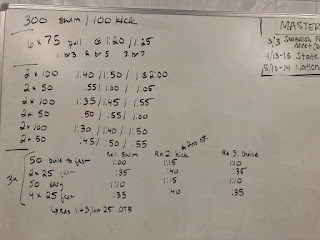 300 swim / 100 kick
6 x 75 pull @ 1:20 / 1:25
1 br 3 br 5 or 7
2 x 100 1:40 / 1:50 / @ 2:00
2 x 50 :55 / 1:00 / 1:05
2 x 100 1:35 / 1:45 / 1:55
2 x 50 :50 / :55 / 1:00
2 x 100 1:30 / 1:40 / 1:50
2 x 50 :45 / :50 / :55
Rx 1: Swim Rx 2: Kick Rx 3: Choice
3x
50 build to fast 1:00 1:15 1:10
2 x 25 fast :35 :40 :35
50 easy 1:10 1:15 1:10
4 x 25 fast :35 :40 :35
25 OTB
MASTER
3/3 Swedish
Meet
4/13-15 State
5/10-14 Nation